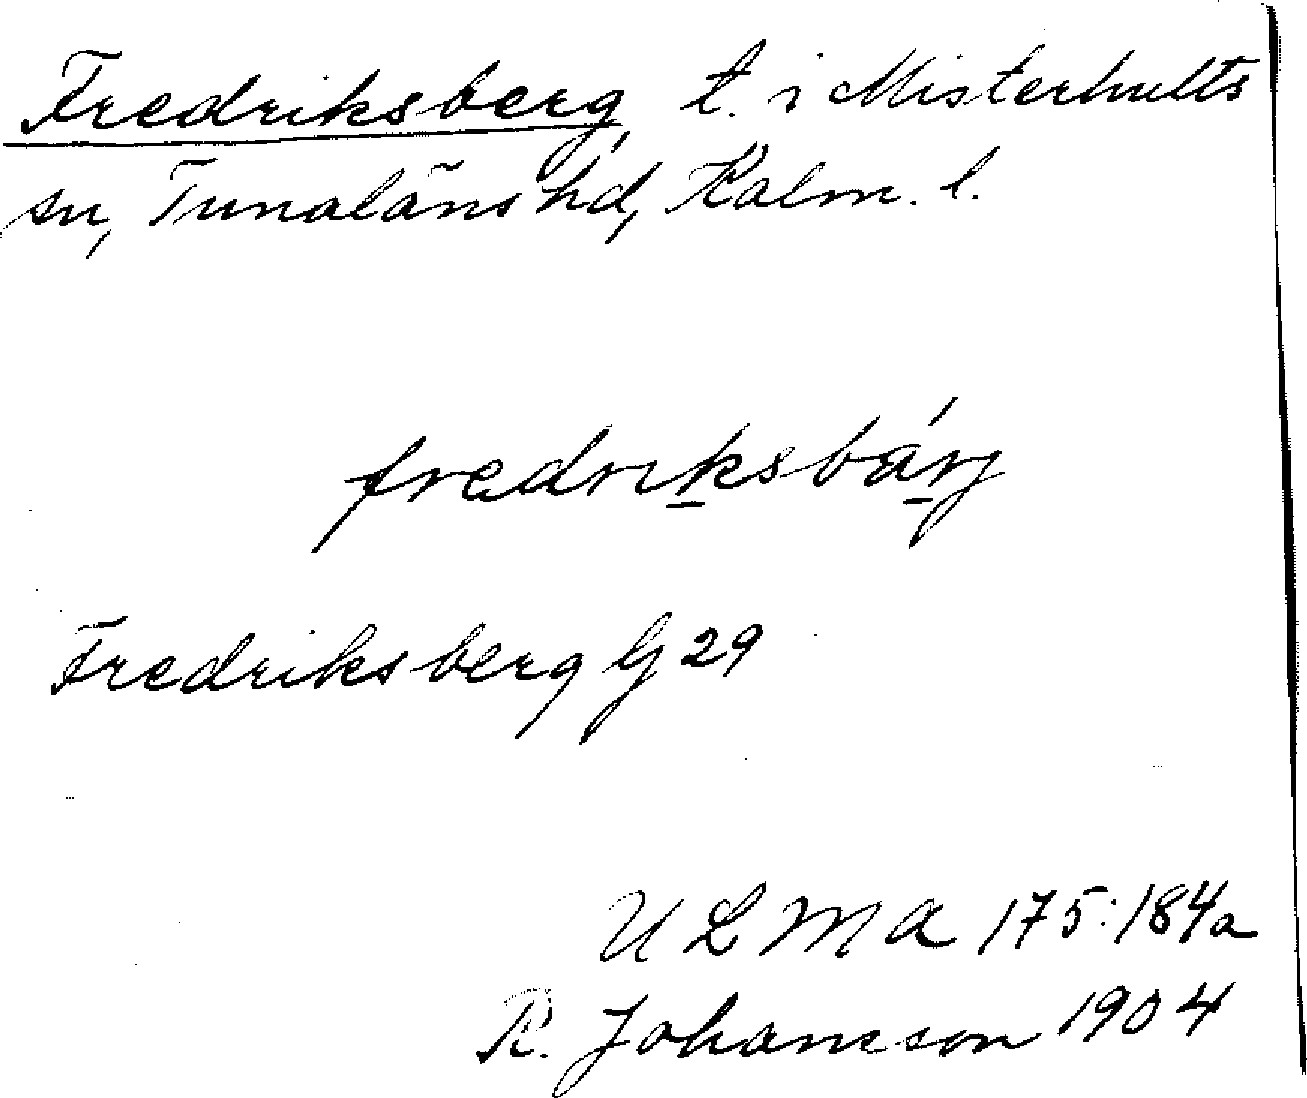 Fredriksberg, t. i Misterhults
sn, Tunaläns hd, Kalm. l.
fredriksbárj
Fredriksberg G 29
U L M A 175:184a
R. Johansson 1904